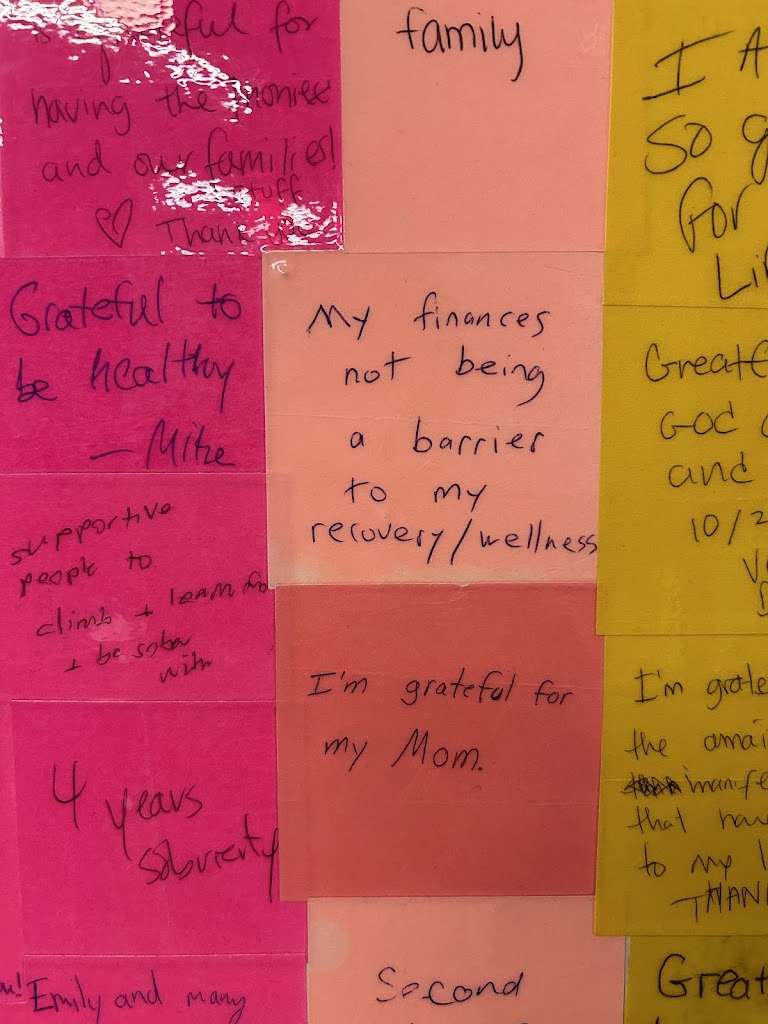 for
having the monies
and our families!
stuff
Thank you
family
I A
So g
For
Li
Grateful to
be healthy
— Mike
My finances
not being
a barrier
to my
recovery/wellness
Greatf
God
and
10/2
supportive
people to
climb + learn from
+ be sober
with
I'm grateful for
my Mom.
I'm grate
the amai
manife
that hav
to my l
THAN
4 years
sobrierty
Emily and many
Second
Great